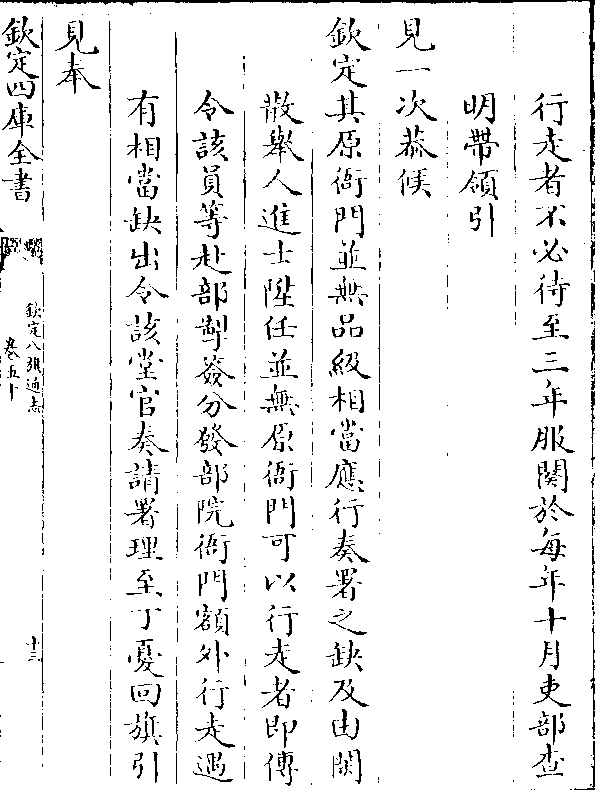 行走者不必待至三年服闋於每年十月吏部查
明帶領引
見一次恭候
欽定其原衙門並無品級相當應行奏署之缺及由閒
散舉人進士陞任並無原衙門可以行走者即傳
令該員等赴部掣簽分發部院衙門額外行走遇
有相當缺出令該堂官奏請署理至丁憂回旗引
見奉
欽定四庫全書
欽定八旗通志
卷五十
十三